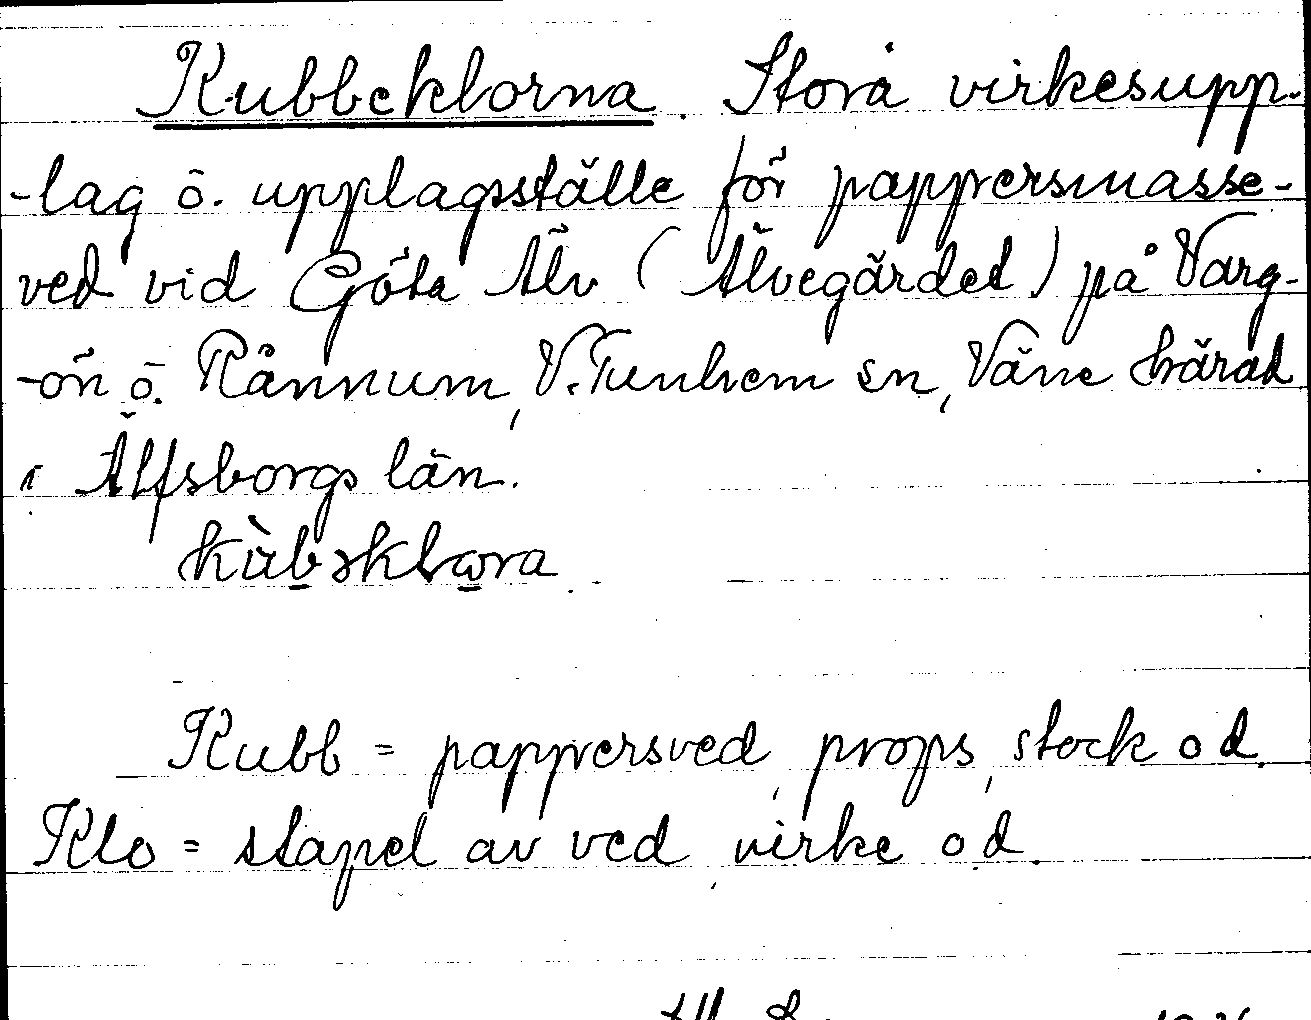 Kubbeklorna. Stora virkesupp-
-lag o. upplagsställe för pappersmasse-
ved vid Göta Älv (Älvegärdet) på Varg-
-ön o. Rånnum, V. Tunhem sn, Väne härad
i Älfsborgs län.
kùbsklωra
Kubb = pappersved, props, stock o d.
Klo = stapel av ved, virke o.d.